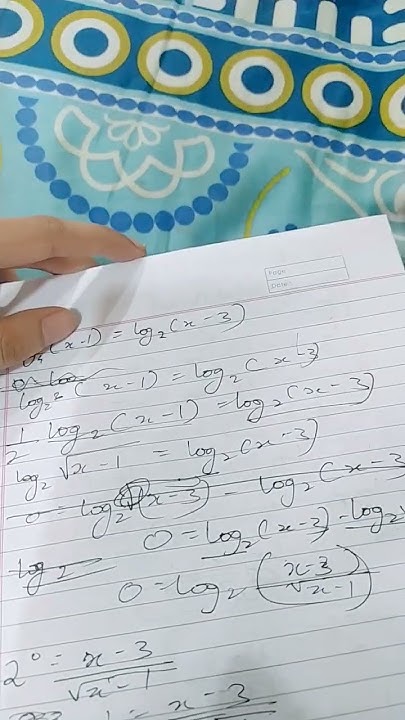 Page
Date:
(x-1) = log₂(x-3)
log₂²(x-1) = log₂(x-3
1/2 log₂(x-1) = log₂(x-3)
log₂ √x-1 = log₂(x-3)
0 = log₂ (x-3) - log₂(x-3
0 = log₂(x-3) - log₂
log 2
0 = log₂ (x-3/√x-1)
2⁰ = x-3/√x-1
= x-3